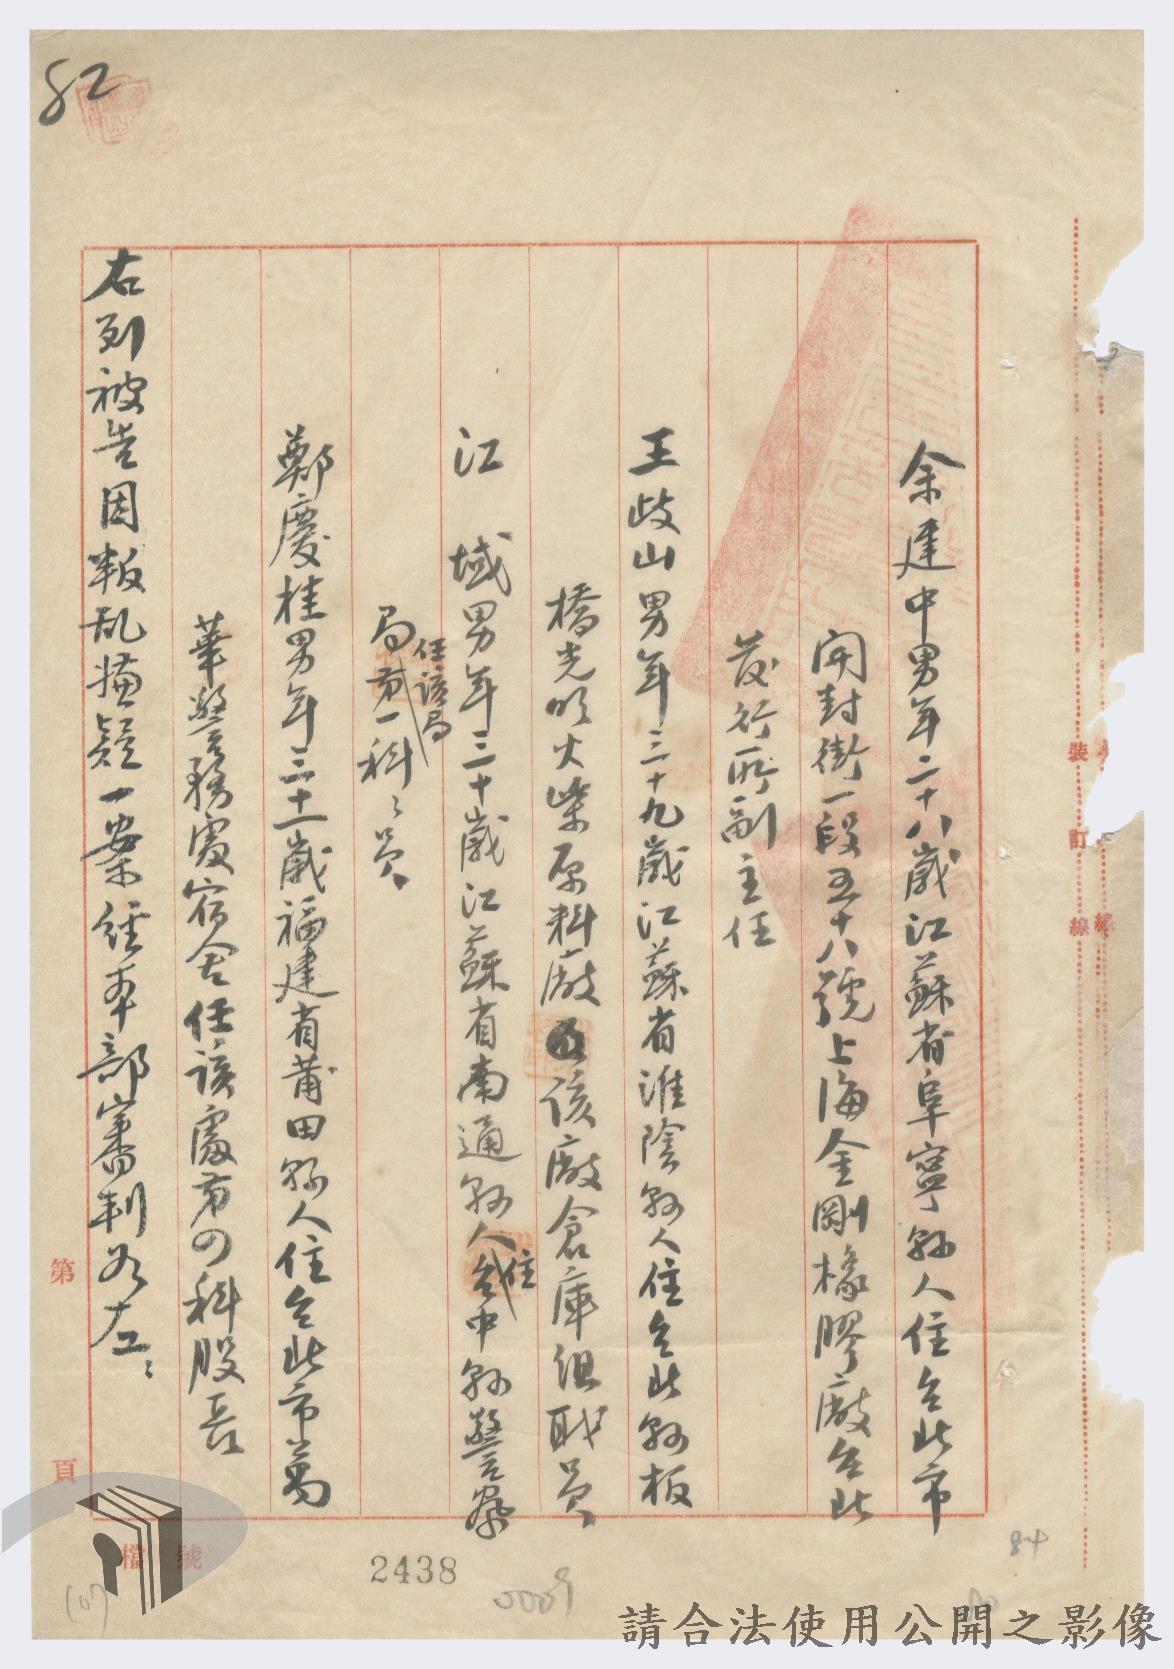 82
余建中男年二十八歲江蘇省阜寧縣人住台北市
開封街一段五十八號上海金剛橡膠廠台北
發行所副主任
王歧山男年三十九歲江蘇省淮陰縣人住台北縣板
橋光明火柴原料廠 該廠倉庫組職員
江 域男年三十歲江蘇省南通縣人住台中縣警察
局任該局第一科科員
鄭慶桂男年三十一歲福建省莆田縣人住台北市萬
華警務處宿舍任該處第四科股長
右列被告因叛乱嫌疑一案經本部審判如左:
裝
訂
線
線
第
頁
檔 號
2438
0009
84
107
請合法使用公開之影像